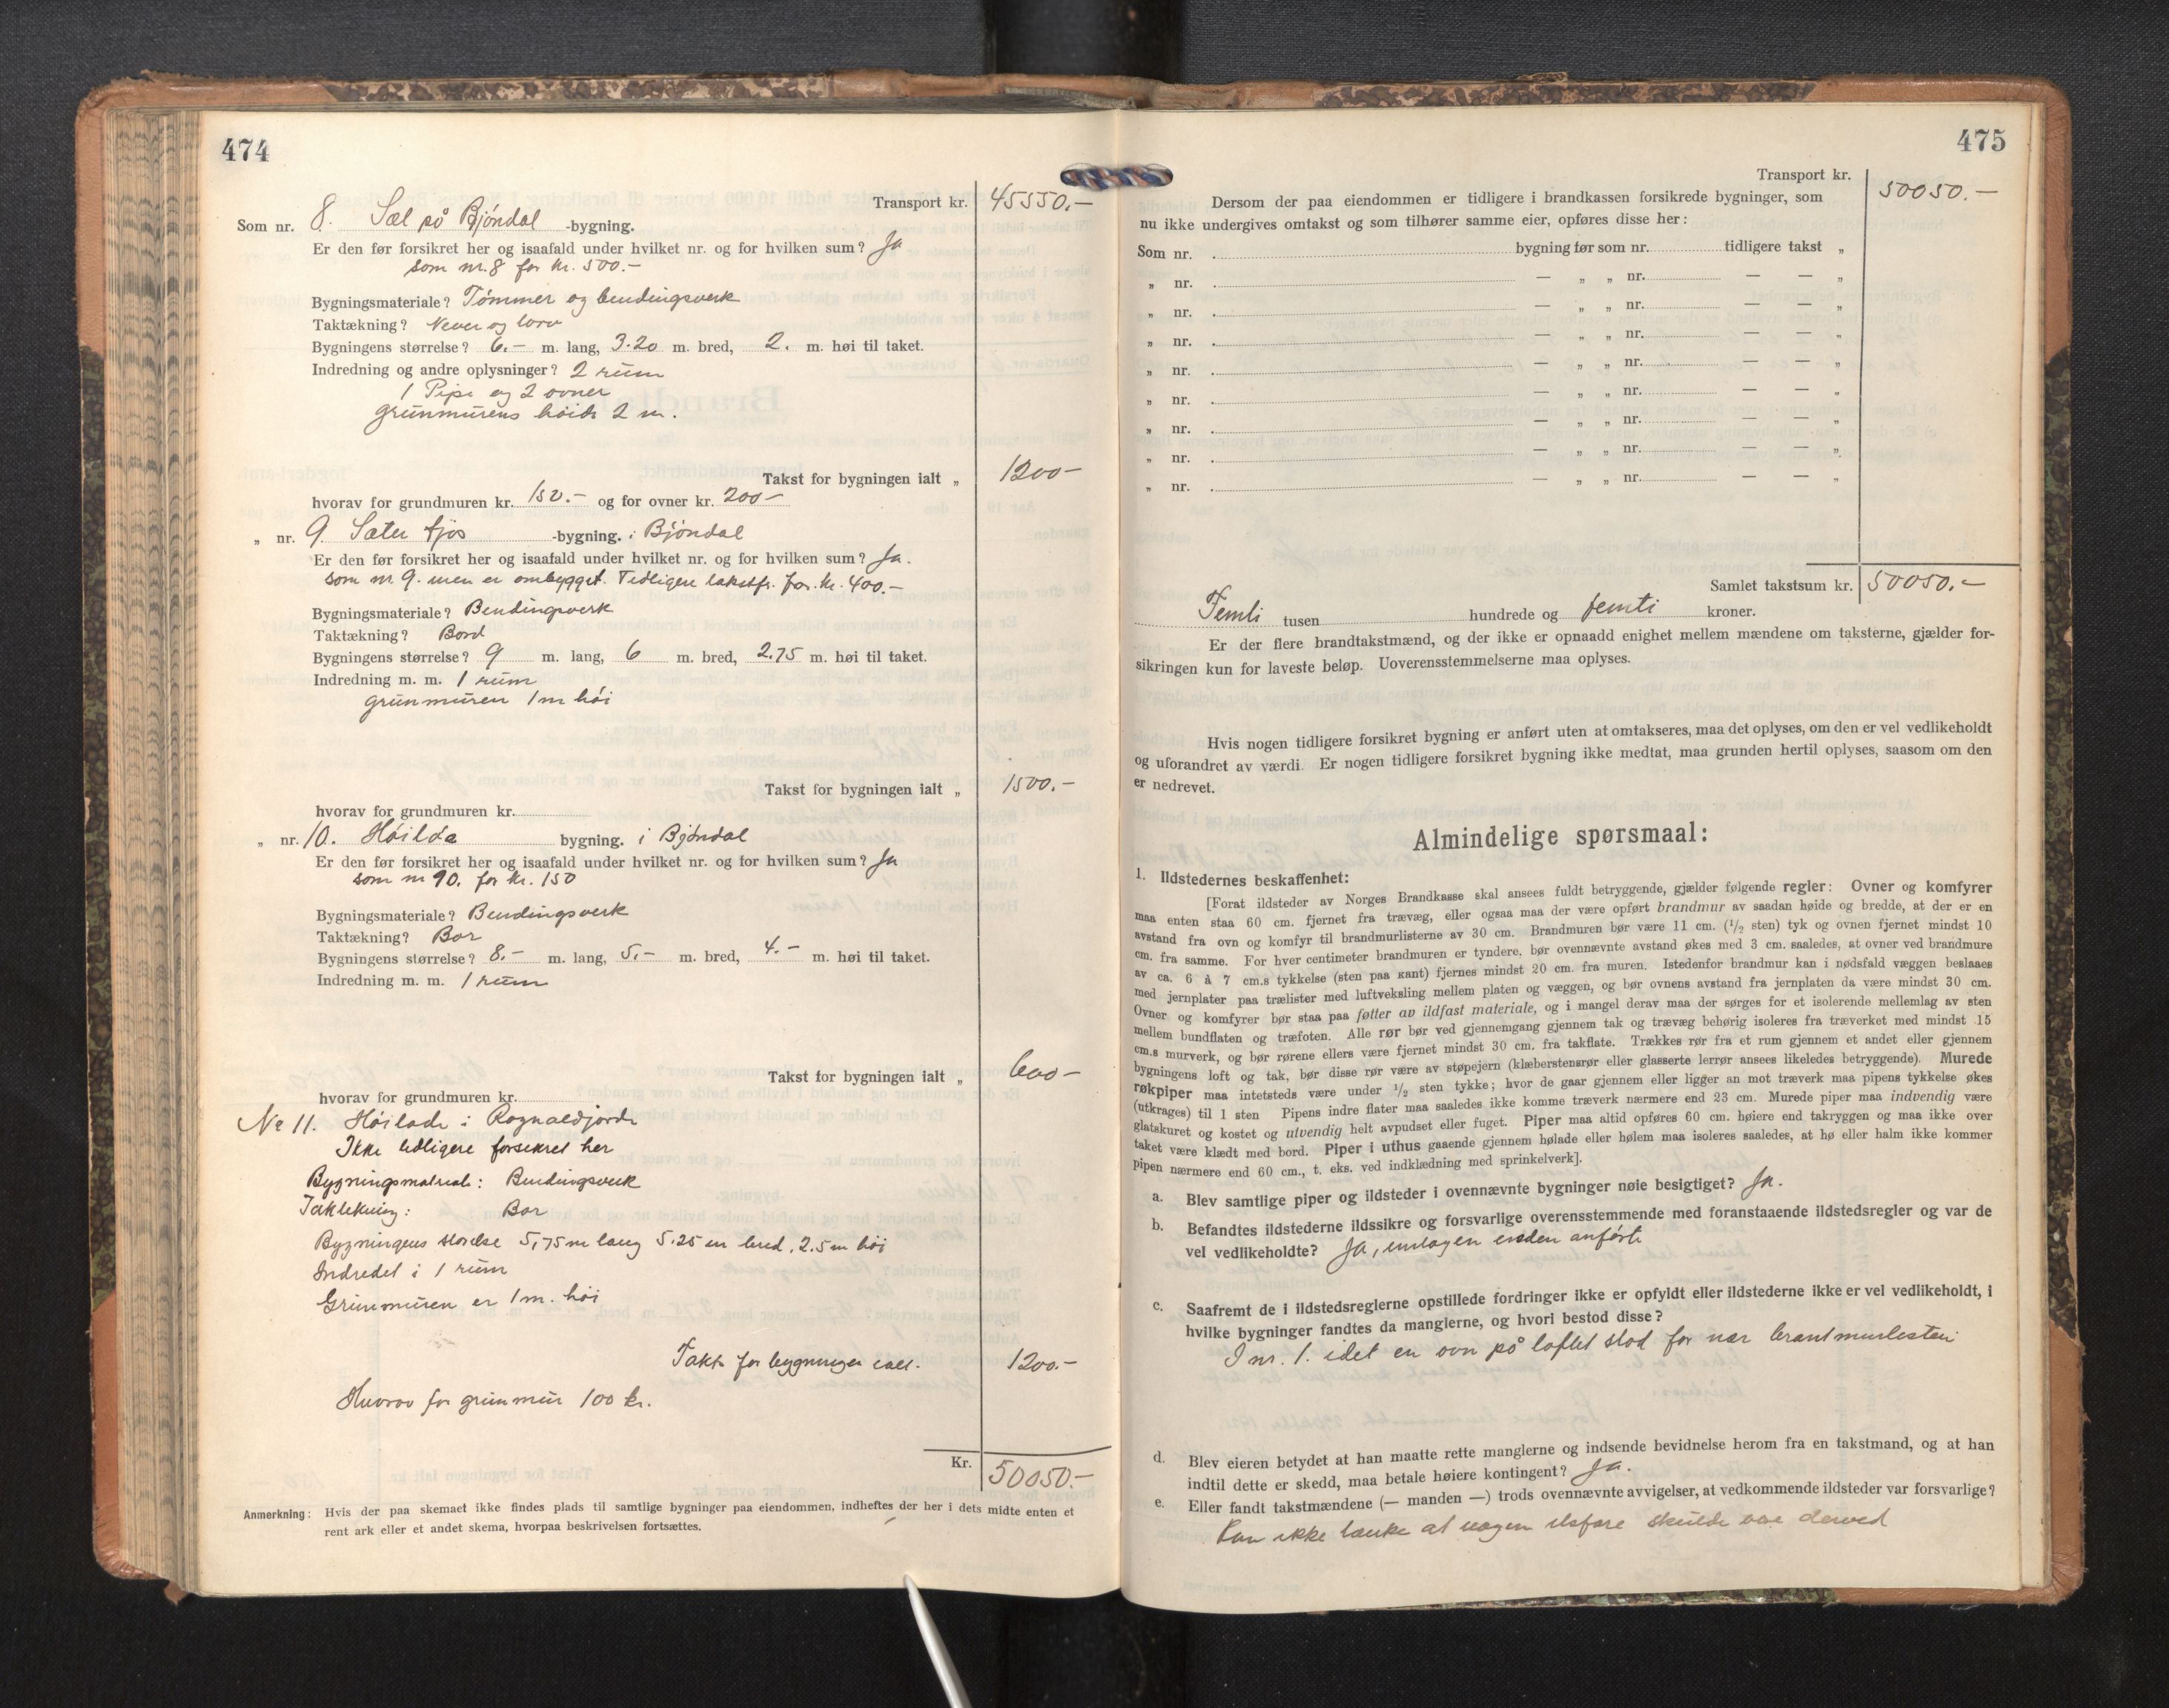 474
Transport kr. 45550.–
Som nr. 8. Sæl på Bjóndal -bygning.
Er den før forsikret her og isaafald under hvilket nr. og for hvilken sum? Ja
som nr. 8 for kr. 500.–
Bygningsmateriale? Tömmer og bendingsverk
Taktækning? Never og torv
Bygningens størrelse? 6.– m. lang, 3.20 m. bred, 2. m. høi til taket.
Indredning og andre oplysninger? 2 rum
1 Pipe og 2 ovner
grunmurens höide 2 m.
Takst for bygningen ialt „ 1200–
hvorav for grundmuren kr. 150.– og for ovner kr. 200–
„ nr. 9. Sæter fjøs -bygning. i Bjóndal
Er den før forsikret her og isaafald under hvilket nr. og for hvilken sum? Ja.
som nr 9. men er ombygget. Tidligere takst for kr. 400.–
Bygningsmateriale? Bendingsverk
Taktækning? Bord
Bygningens størrelse? 9 m. lang, 6 m. bred, 2.75 m. høi til taket.
Indredning m. m. 1 rum
grunmuren 1 m höi
Takst for bygningen ialt „ 1500.–
hvorav for grundmuren kr.
„ nr. 10. Höilda bygning. i Bjóndal
Er den før forsikret her og isaafald under hvilket nr. og for hvilken sum? Ja
som nr 10. for kr. 150
Bygningsmateriale? Bendingsverk
Taktækning? Bor
Bygningens størrelse? 8.– m. lang, 5.– m. bred, 4.– m. høi til taket.
Indredning m. m. 1 rum
Takst for bygningen ialt „ 600–
hvorav for grundmuren kr.
No 11. Höilade i Rognaldjorde
Ikke tidligere forsikret her
Bygningsmatriale: Bendingsverk
Taktekning: Bor
Bygningens störelse 5,75 m lang 5.25 m bred, 2.5 m höi
Indredet i 1 rum
Grunmuren er 1 m. höi
Takst for bygningen ialt. 1200.–
Hvorav for grunmur 100 kr.
Kr. 50050.–
Anmerkning: Hvis der paa skemaet ikke findes plads til samtlige bygninger paa eiendommen, indheftes der her i dets midte enten et
rent ark eller et andet skema, hvorpaa beskrivelsen fortsættes.
475
Transport kr. 50050.–
Dersom der paa eiendommen er tidligere i brandkassen forsikrede bygninger, som
nu ikke undergives omtakst og som tilhører samme eier, opføres disse her:
Som nr. bygning før som nr. tidligere takst „
„ nr. — „ „ nr. — — „
„ nr. — „ „ nr. — — „
„ nr. — „ „ nr. — — „
„ nr. — „ „ nr. — — „
„ nr. — „ „ nr. — — „
„ nr. — „ „ nr. — — „
„ nr. — „ „ nr. — — „
„ nr. — „ „ nr. — — „
Samlet takstsum kr. 50050.–
Femti tusen hundrede og femti kroner.
Er der flere brandtakstmænd, og der ikke er opnaadd enighet mellem mændene om taksterne, gjælder for-
sikringen kun for laveste beløp. Uoverensstemmelserne maa oplyses.
Hvis nogen tidligere forsikret bygning er anført uten at omtakseres, maa det oplyses, om den er vel vedlikeholdt
og uforandret av værdi. Er nogen tidligere forsikret bygning ikke medtat, maa grunden hertil oplyses, saasom om den
er nedrevet.
Almindelige spørsmaal:
1. Ildstedernes beskaffenhet:
[Forat ildsteder av Norges Brandkasse skal ansees fuldt betryggende, gjælder følgende regler: Ovner og komfyrer
maa enten staa 60 cm. fjernet fra trævæg, eller ogsaa maa der være opført brandmur av saadan høide og bredde, at der er en
avstand fra ovn og komfyr til brandmurlisterne av 30 cm. Brandmuren bør være 11 cm. (1/2 sten) tyk og ovnen fjernet mindst 10
cm. fra samme. For hver centimeter brandmuren er tyndere, bør ovennævnte avstand økes med 3 cm. saaledes, at ovner ved brandmure
av ca. 6 à 7 cm.s tykkelse (sten paa kant) fjernes mindst 20 cm. fra muren. Istedenfor brandmur kan i nødsfald væggen beslaaes
med jernplater paa trælister med luftveksling mellem platen og væggen, og bør ovnens avstand fra jernplaten da være mindst 30 cm.
Ovner og komfyrer bør staa paa føtter av ildfast materiale, og i mangel derav maa der sørges for et isolerende mellemlag av sten
mellem bundflaten og træfoten. Alle rør bør ved gjennemgang gjennem tak og trævæg behørig isoleres fra træverket med mindst 15
cm.s murverk, og bør rørene ellers være fjernet mindst 30 cm. fra takflate. Trækkes rør fra et rum gjennem et andet eller gjennem
bygningens loft og tak, bør disse rør være av støpejern (klæberstensrør eller glasserte lerrør ansees likeledes betryggende). Murede
røkpiper maa intetsteds være under 1/2 sten tykke; hvor de gaar gjennem eller ligger an mot træverk maa pipens tykkelse økes
(utkrages) til 1 sten Pipens indre flater maa saaledes ikke komme træverk nærmere end 23 cm. Murede piper maa indvendig være
glatskuret og kostet og utvendig helt avpudset eller fuget. Piper maa altid opføres 60 cm. høiere end takryggen og maa ikke over
taket være klædt med bord. Piper i uthus gaaende gjennem hølade eller hølem maa isoleres saaledes, at hø eller halm ikke kommer
pipen nærmere end 60 cm., t. eks. ved indklædning med sprinkelverk].
a. Blev samtlige piper og ildsteder i ovennævnte bygninger nøie besigtiget? Ja.
b. Befandtes ildstederne ildssikre og forsvarlige overensstemmende med foranstaaende ildstedsregler og var de
vel vedlikeholdte? Ja, untagen enden anförte
c. Saafremt de i ildstedsreglerne opstillede fordringer ikke er opfyldt eller ildstederne ikke er vel vedlikeholdt, i
hvilke bygninger fandtes da manglerne, og hvori bestod disse?
I nr. 1. idet en ovn på loftet stod for nær brantmurlesten
d. Blev eieren betydet at han maatte rette manglerne og indsende bevidnelse herom fra en takstmand, og at han
indtil dette er skedd, maa betale høiere kontingent? Ja.
e. Eller fandt takstmændene (— manden —) trods ovennævnte avvigelser, at vedkommende ildsteder var forsvarlige?
Kan ikke tænke at nogen ilsfare skulde være derved